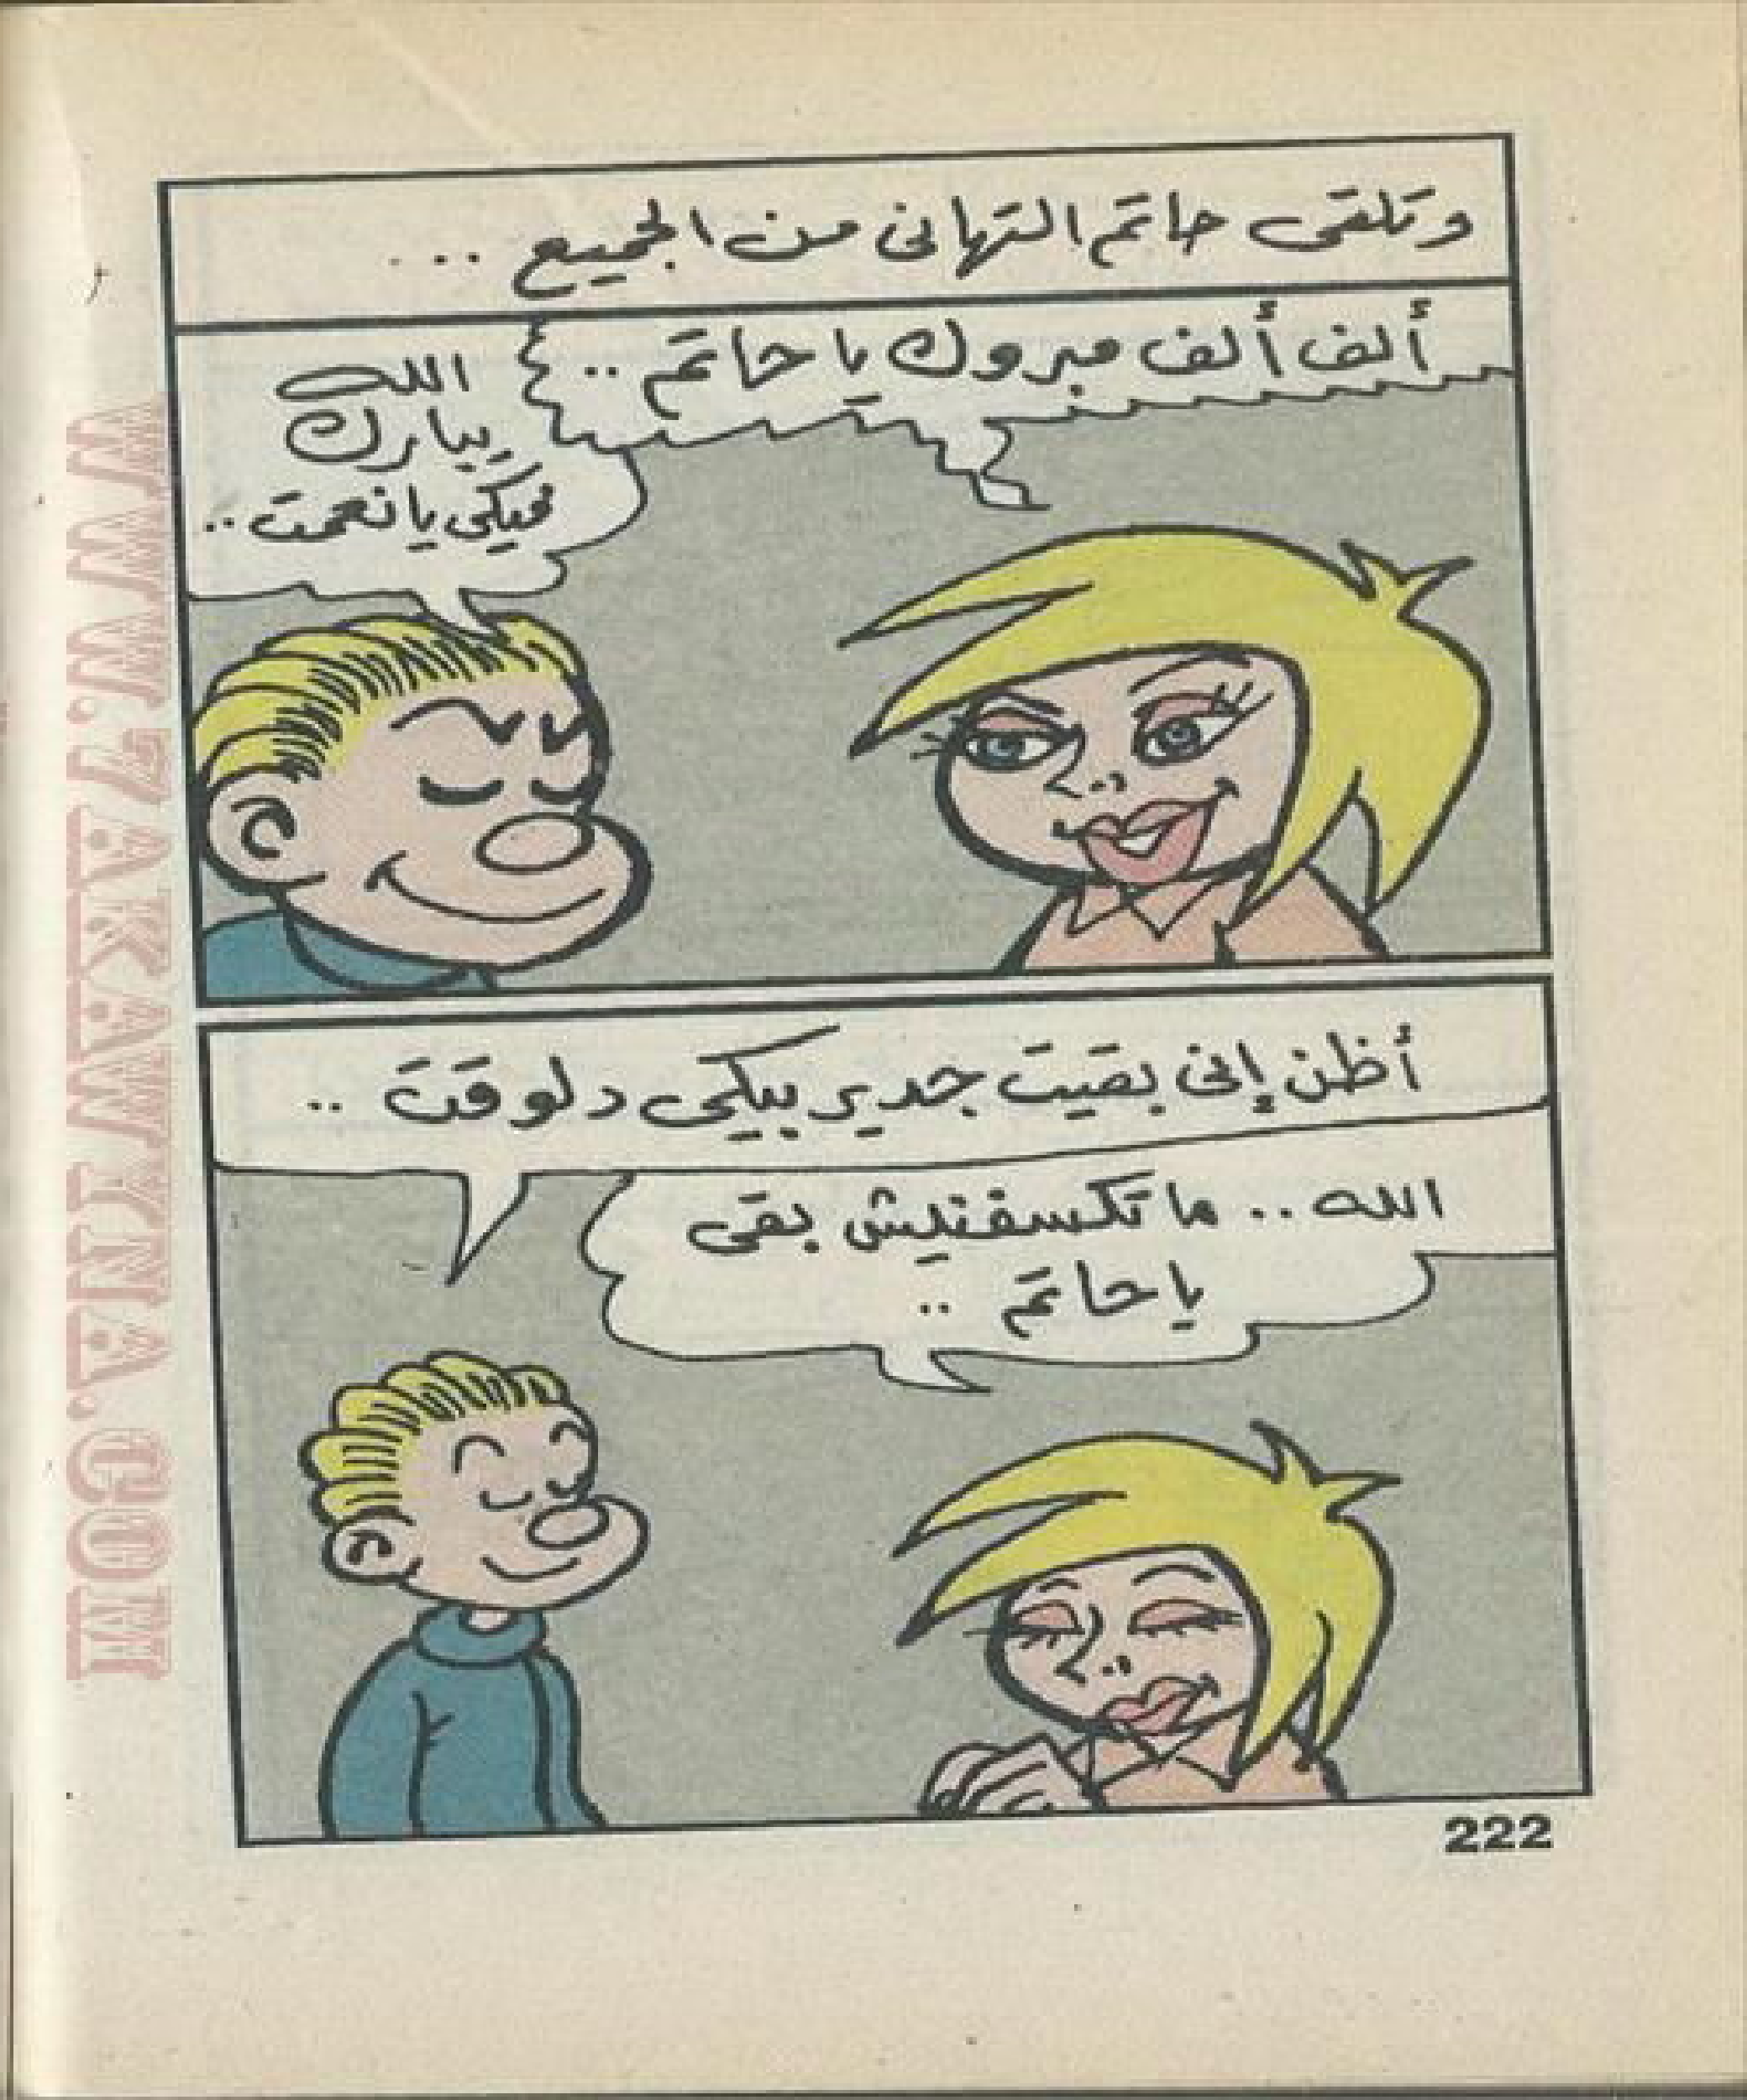 وتلقى حاتم التهانى من الجميع ...
ألف ألف مبروك يا حاتم ..
الله
يبارك
فيكى يا نعمت ..
أظن إنى بقيت جدير بيكى دلوقت ..
الله .. ما تكسفنيش بقى
يا حاتم ..
222
WWW.7AKAWINA.COM